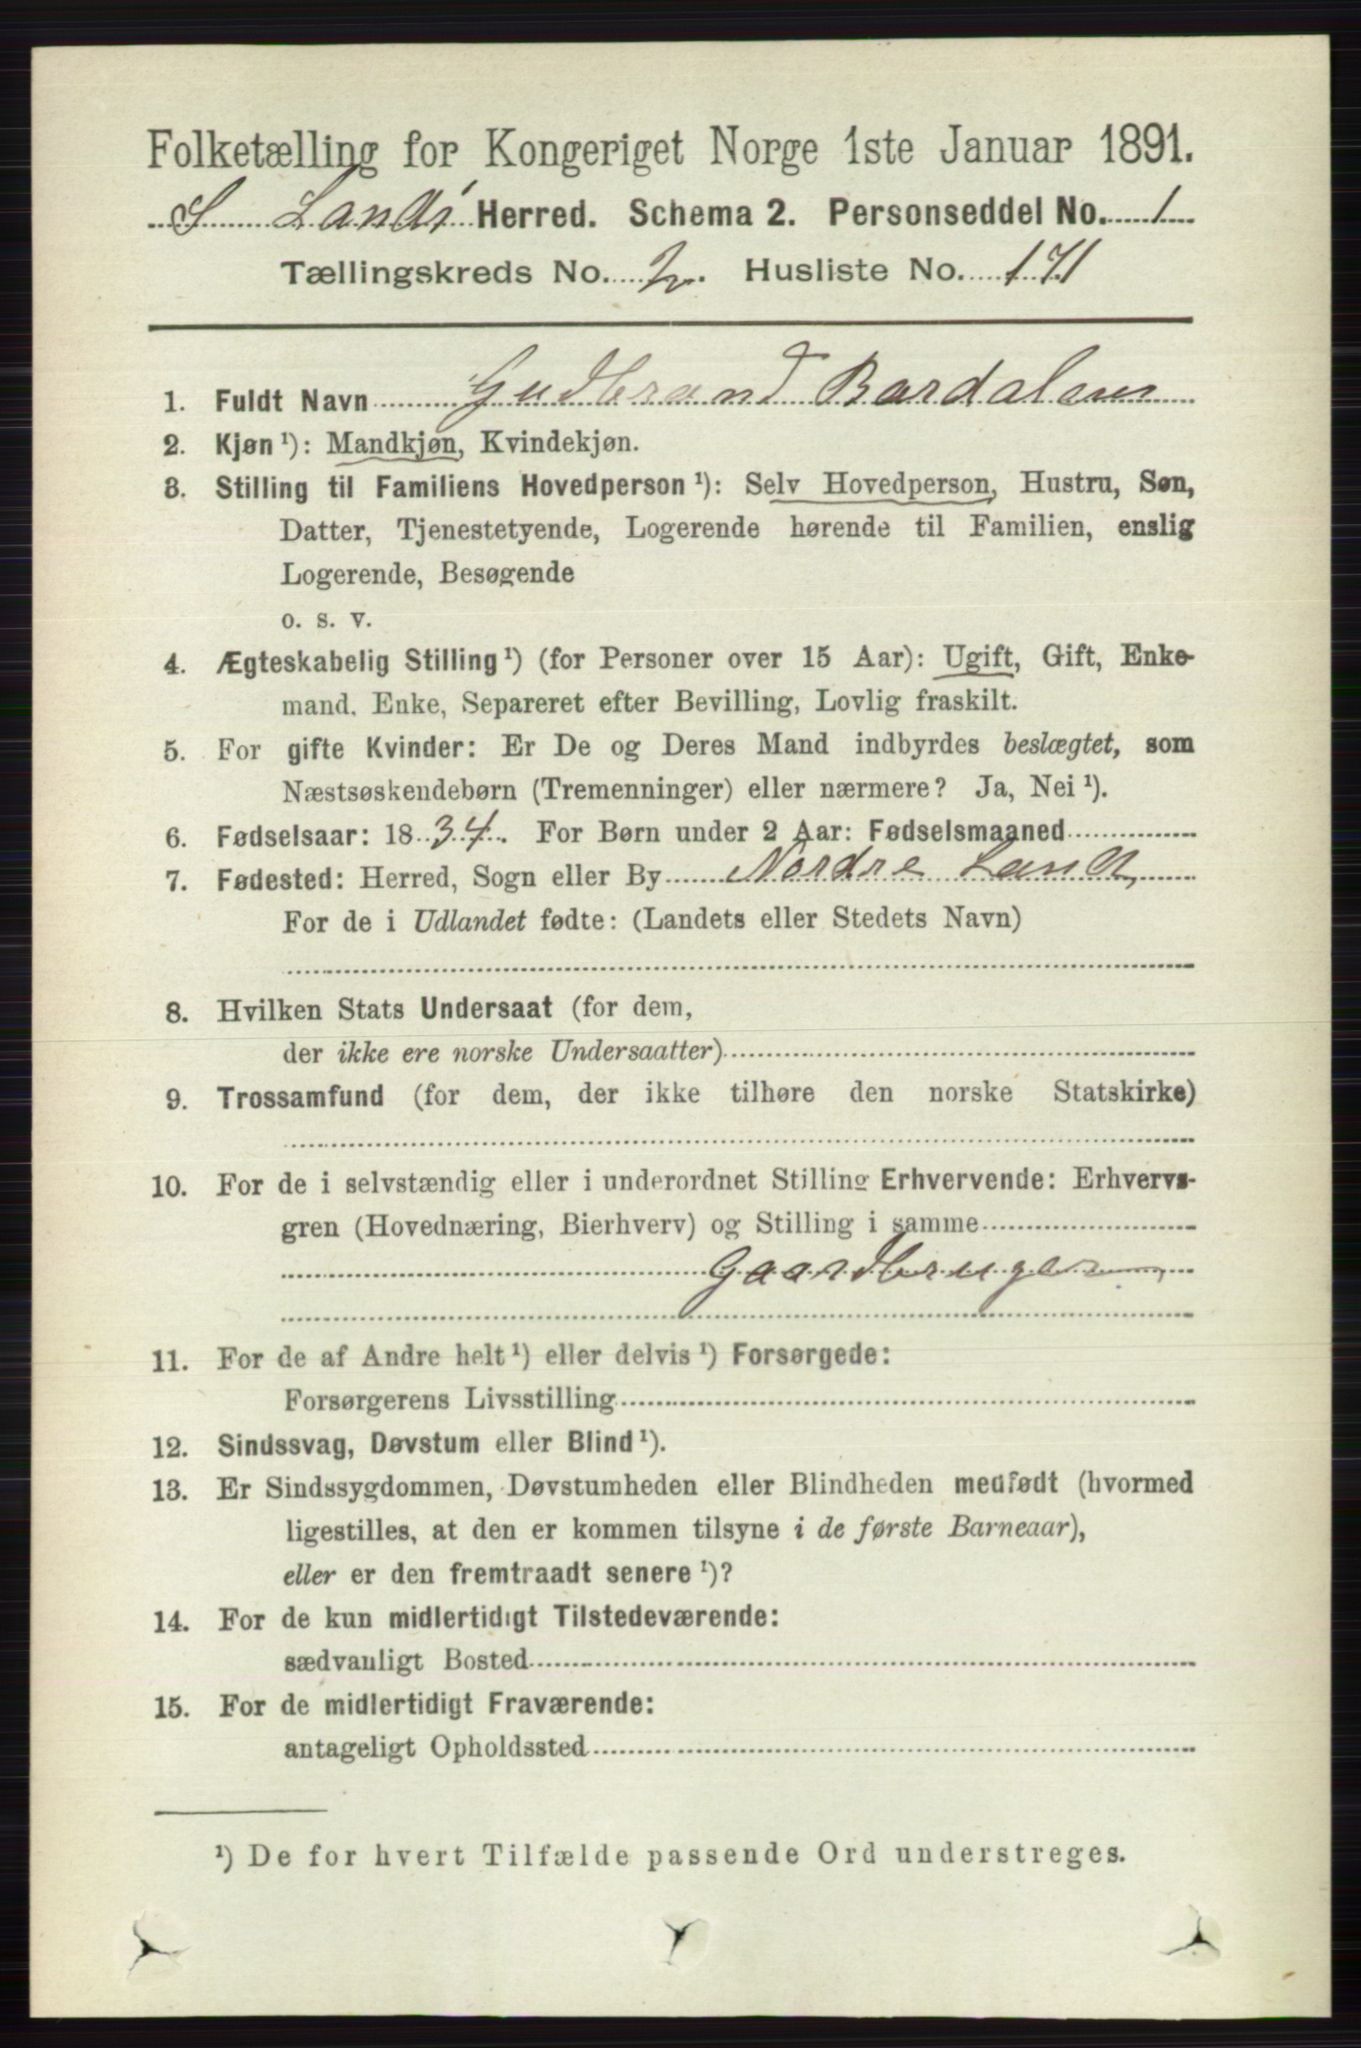 Folketælling for Kongeriget Norge 1ste Januar 1891.
S Land Herred. Schema 2. Personseddel No. 1
Tællingskreds No. 2. Husliste No. 171
1. Fuldt Navn Gudbrand Bardalen
2. Kjøn ¹): Mandkjøn, Kvindekjøn.
3. Stilling til Familiens Hovedperson ¹): Selv Hovedperson, Hustru, Søn,
Datter, Tjenestetyende, Logerende hørende til Familien, enslig
Logerende, Besøgende
o. s. v.
4. Ægteskabelig Stilling ¹) (for Personer over 15 Aar): Ugift, Gift, Enke-
mand, Enke, Separeret efter Bevilling, Lovlig fraskilt.
5. For gifte Kvinder: Er De og Deres Mand indbyrdes beslægtet, som
Næstsøskendebørn (Tremenninger) eller nærmere? Ja, Nei ¹).
6. Fødselsaar: 1834. For Børn under 2 Aar: Fødselsmaaned
7. Fødested: Herred, Sogn eller By Nordre Land
For de i Udlandet fødte: (Landets eller Stedets Navn)
8. Hvilken Stats Undersaat (for dem,
der ikke ere norske Undersaatter)
9. Trossamfund (for dem, der ikke tilhøre den norske Statskirke)
10. For de i selvstændig eller i underordnet Stilling Erhvervende: Erhvervs-
gren (Hovednæring, Bierhverv) og Stilling i samme
Gaardbruger
11. For de af Andre helt ¹) eller delvis ¹) Forsørgede:
Forsørgerens Livsstilling
12. Sindssvag, Døvstum eller Blind ¹).
13. Er Sindssygdommen, Døvstumheden eller Blindheden medfødt (hvormed
ligestilles, at den er kommen tilsyne i de første Barneaar),
eller er den fremtraadt senere ¹)?
14. For de kun midlertidigt Tilstedeværende:
sædvanligt Bosted
15. For de midlertidigt Fraværende:
antageligt Opholdssted
¹) De for hvert Tilfælde passende Ord understreges.